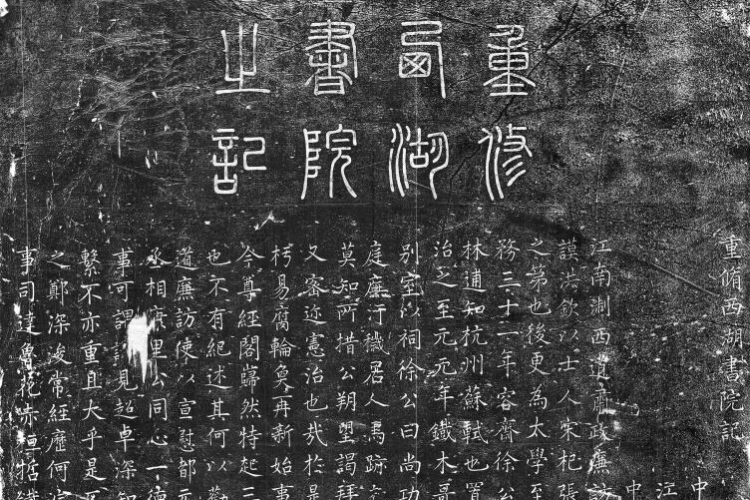 重修
西湖
書院
之記
重脩西湖書院記
江南浙西道肅政廉訪
謨洪欽以士人宋杞張
之苐也後更為太學至
務三十一年容齋徐公
林逋知杭州蘇軾也置
治之至元元年鐵木哥
別室以祠徐公曰尚功
庭廡汙穢居人馮跡
莫知所措公朔朢謁拜
又密迩憲治也㢤於是
杇易腐輪奐再新始事
今尊經閣巋然特起三
也不有紀述其何以勸
道廉訪使以宣慰都元
丞相康里公同心一德
事可謂見超卓深知
繫不亦重且大乎是
之鄭深浚常經歷何
事司達魯花赤